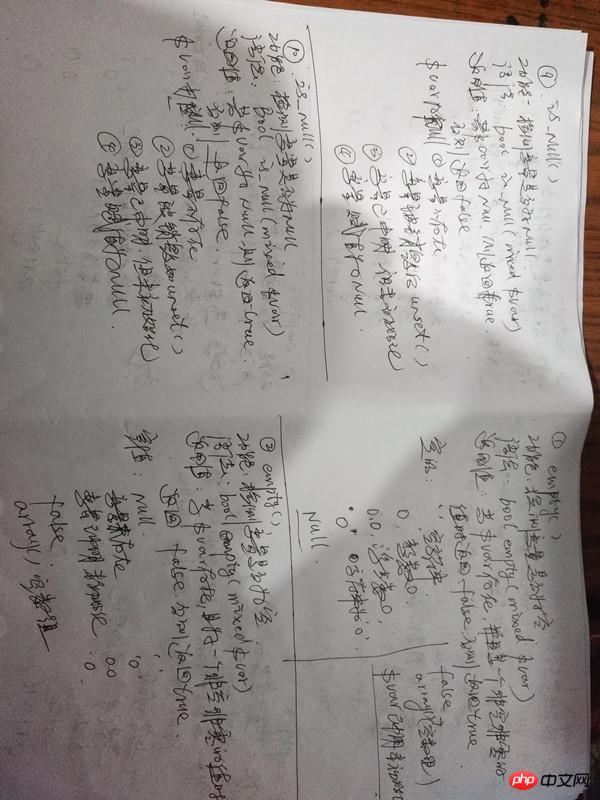 ⑨ is_null()
功能: 检测变量是否为NULL
语法: bool is_null(mixed $var)
返回值: 若$var为Null, 则返回true
否则返回false
$var为null ① 变量不存在
② 变量被销毁 unset()
③ 变量已申明, 但未初始化
④ 变量赋值为NULL.
⑩ is_null()
功能: 检测变量是否为NULL
语法: bool is_null(mixed $var)
返回值: 若$var为Null 则返回true.
否则返回false.
$var为 ① 变量不存在
② 变量被销毁 unset()
③ 变量已申明, 但未初始化
④ 变量赋值为NULL.
① empty()
功能: 检测变量是否为空
语法: bool empty(mixed $var)
返回值: 当$var存在, 并且是一个非空非零的
值时返回false 否则返回true
'' 空字符串
0, 整数0,
0.0, 浮点数0,
'0' 字符串0,
Null.
false
array() (空数组)
② empty()
功能: 检测变量是否为空
语法: bool empty(mixed $var)
返回值: 当$var存在, 且为一个非空非零的值时
返回false 否则返回true.
空值: Null. ''
变量不存在 '0'
变量已申明未初始化 0.0 0.
false
array() 空数组
php 中文网